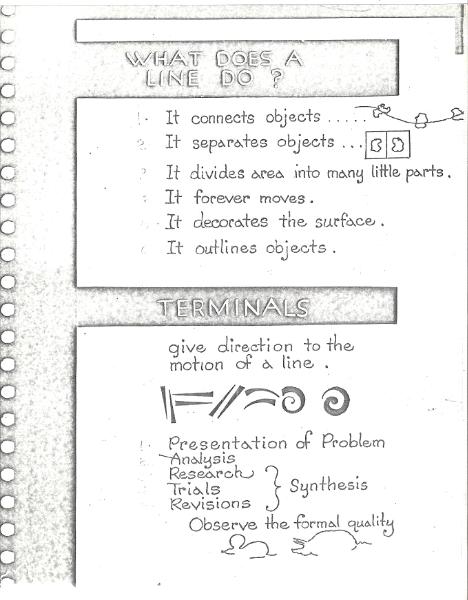 WHAT DOES A
LINE DO ?
1. It connects objects .....
2. It separates objects ...
3. It divides area into many little parts.
It forever moves.
It decorates the surface.
It outlines objects.
TERMINALS
give direction to the
motion of a line .
1. Presentation of Problem
Analysis
Research
Trials
Revisions
Synthesis
Observe the formal quality